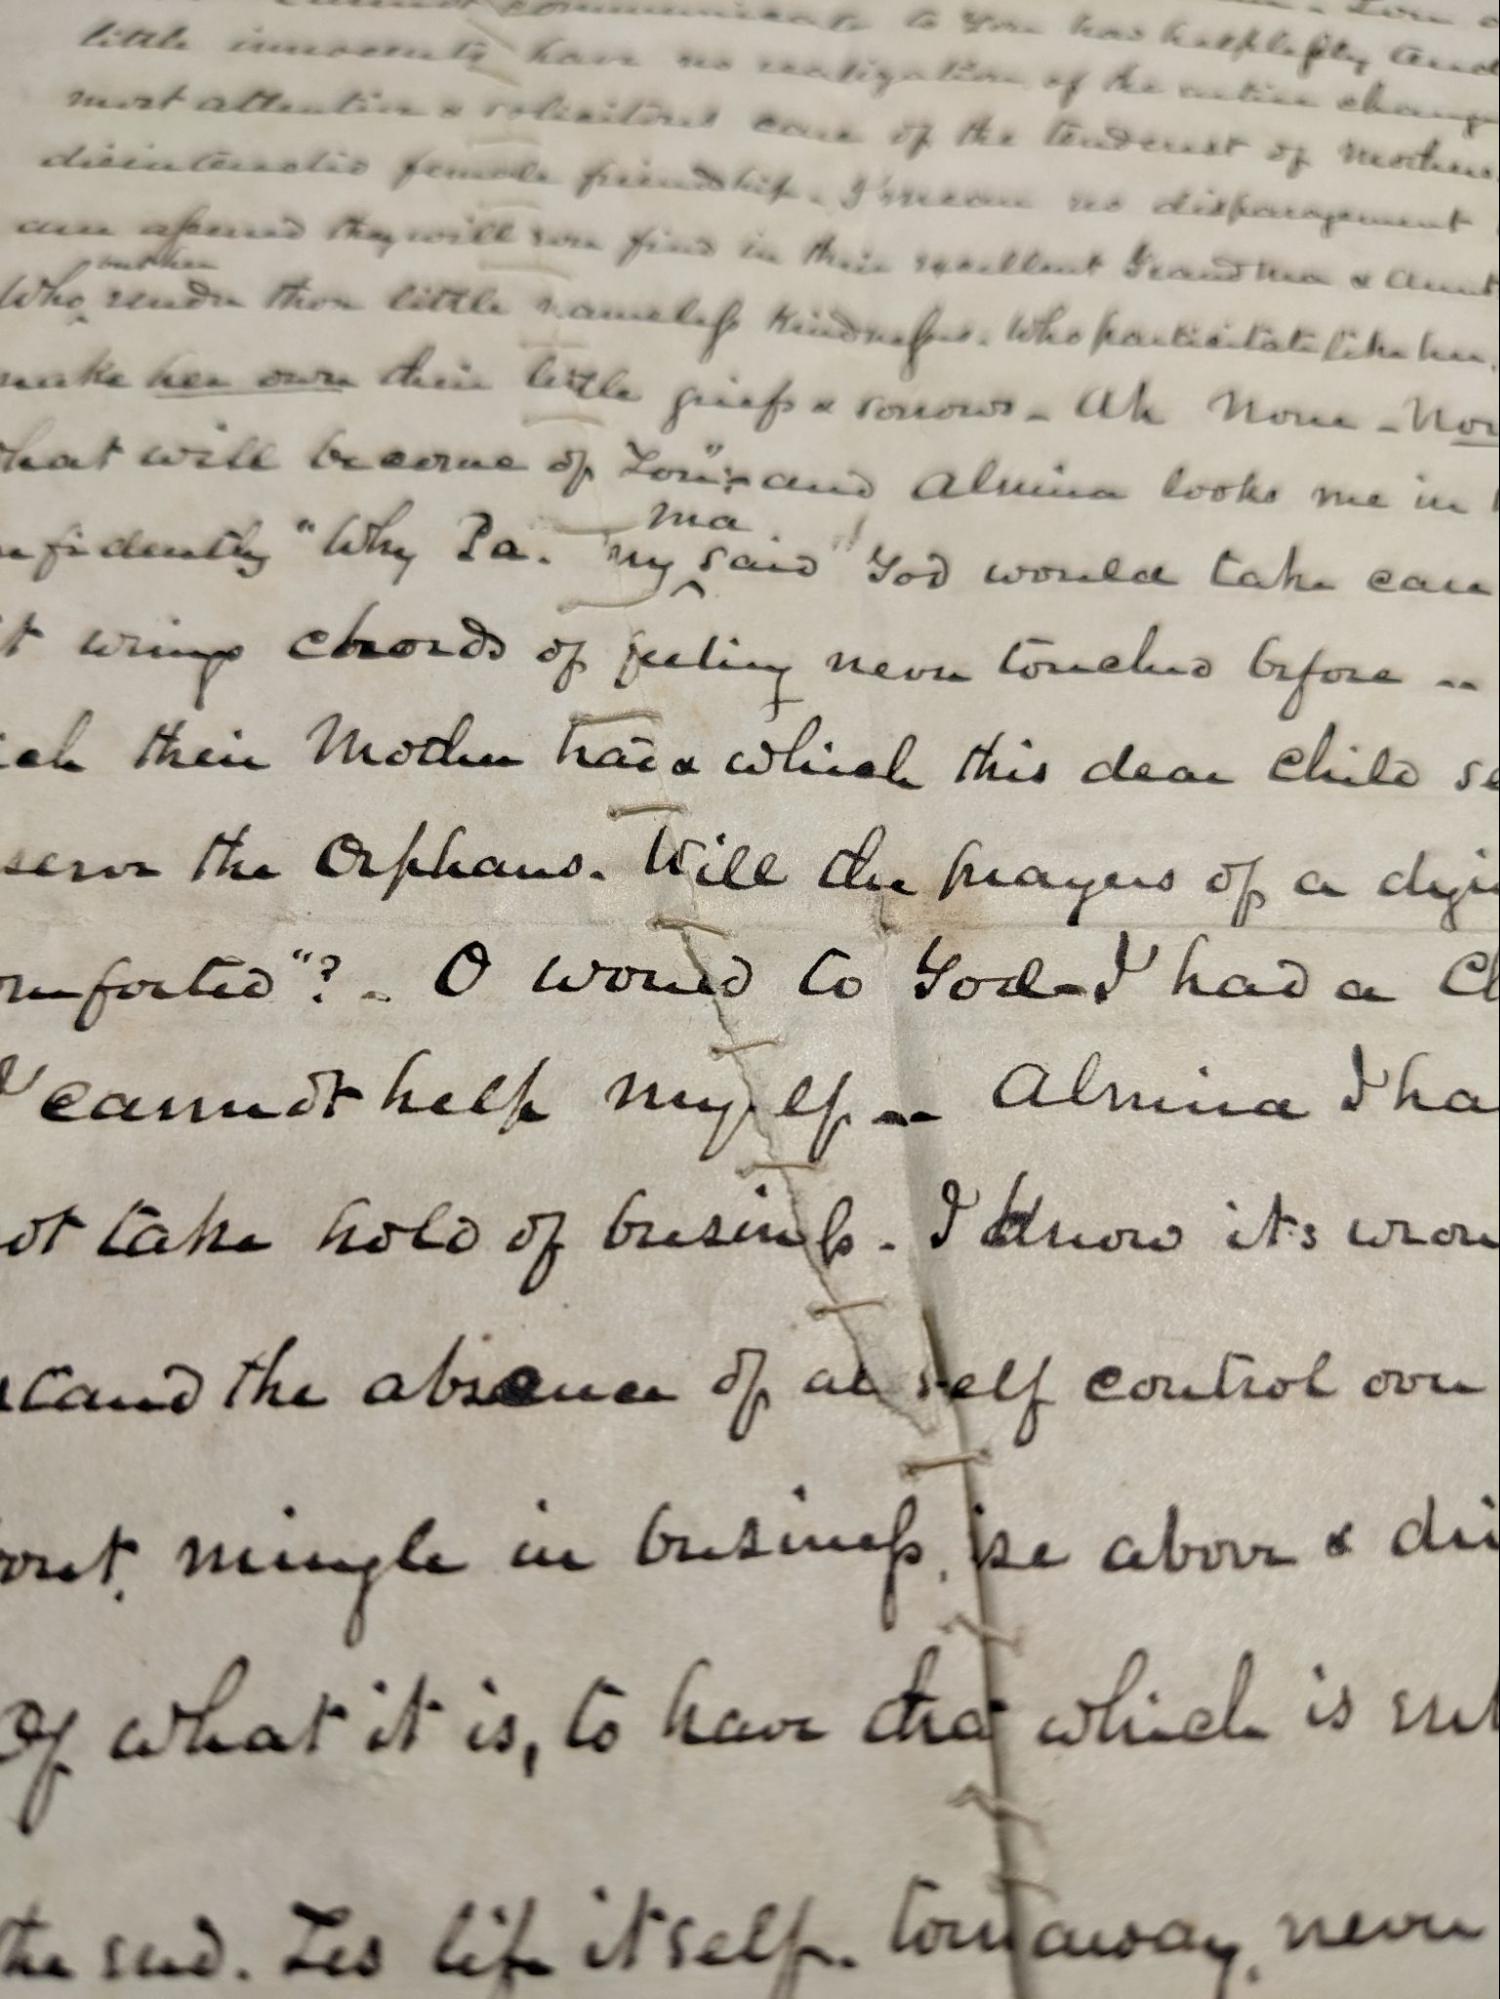 cannot communicate to you has helplessly
little innocents have no realization of the entire change
most attentive & solicitous care of the tenderest of mothers
disinterested female friendship. I mean no disparagement
am assured they will soon find in their excellent Grandma & Aunt
Who render those little nameless kindnesses. Who participitate like her,
make her own their little griefs & sorrows - Ah None - Non
what will become of You" and Almina looks me in
nfidently "Why Pa. my ma said "God would take care
t wrings chords of feeling never touched before --
ich their Mother had & which this dear child se
serve the Orphans. Will the prayers of a dyi
omforted"? - O would to God I had a Ch
I cannot help myself -- Almina I ha
ot take hold of business. I know its wron
stand the absence of all self control over
bout, mingle in business, ise above & di
Of what it is, to have that which is
the end. Tis life itself. torn away, never